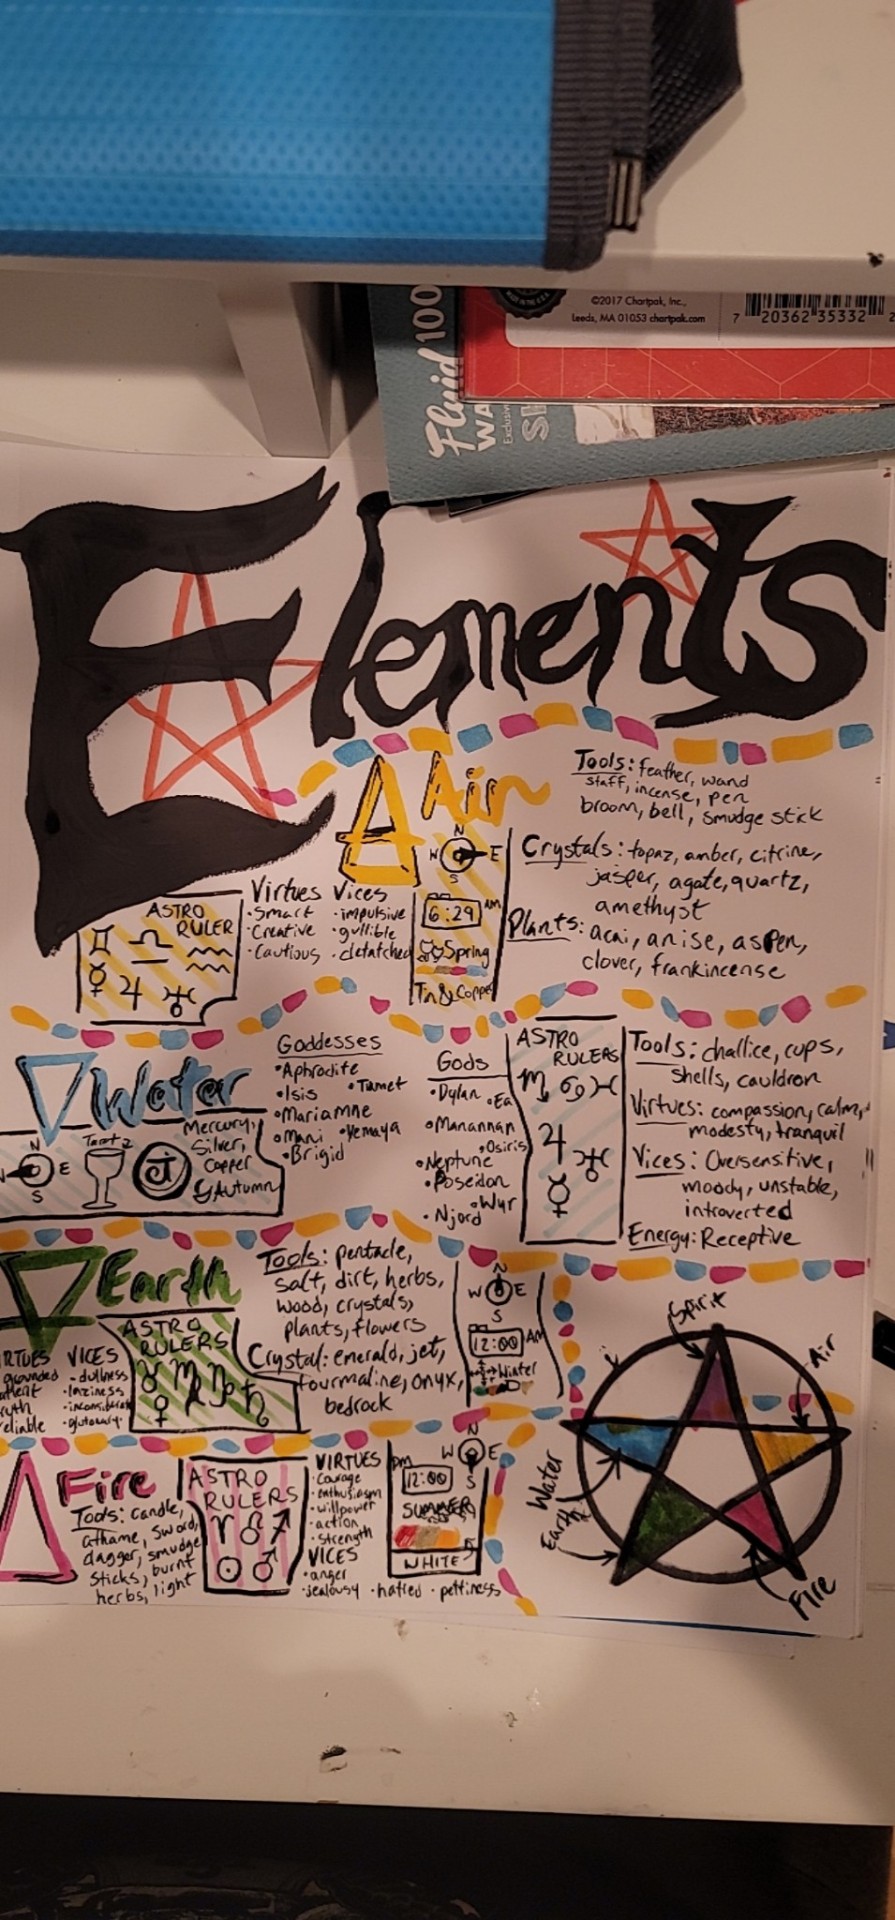 ©2017 Chartpak, Inc.,
Leeds, MA 01053 chartpak.com
7 20362 35332 2
Fluid 100
WA
Exclusiv
Elements
Air
Tools: feather, wand
staff, incense, pen
broom, bell, smudge stick
N
W E
S
Crystals: topaz, amber, citrine,
jasper, agate, quartz,
amethyst
Plants: acai, anise, aspen,
clover, frankincense
ASTRO
RULER
♊ ♎ ♒
☿ ♃ ♅
Virtues
·Smart
·Creative
·Cautious
Vices
·impulsive
·gullible
·detatched
6:29 AM
Spring
Tin & Copper
Water
N
E
S
Mercury,
Silver,
Copper
Autumn
Goddesses
·Aphrodite
·Isis ·Tiamet
·Mariamne
·Mani ·Yemaya
·Brigid
Gods
·Dylan ·Ea
·Manannan
·Osiris
·Neptune
·Poseidon
·Wyr
·Njord
ASTRO
RULERS
♏ ♋ ♓
♃ ♅
☿
Tools: challice, cups,
shells, cauldron
Virtues: compassion, calm,
modesty, tranquil
Vices: Oversensitive,
moody, unstable,
introverted
Energy: Receptive
Earth
RTUES
grounded
uth
eliable
VICES
·dullness
·laziness
·gluttony·
ASTRO
RULERS
Tools: pentacle,
salt, dirt, herbs,
wood, crystals,
plants, flowers
Crystal: emerald, jet,
tourmaline, onyx,
bedrock
N
W E
S
12:00 AM
Winter
Fire
Tools: candle,
athame, sword,
dagger, smudge
sticks, burnt
herbs, light
ASTRO
RULERS
♈ ♌ ♐
☉ ♂
VIRTUES
·Courage
·enthusiasm
·willpower
·action
·strength
VICES
·anger
·jealousy ·hatred ·pettiness
pm
12:00
SUMMER
WHITE
N
W E
S
Spirit
Air
Water
Earth
Fire